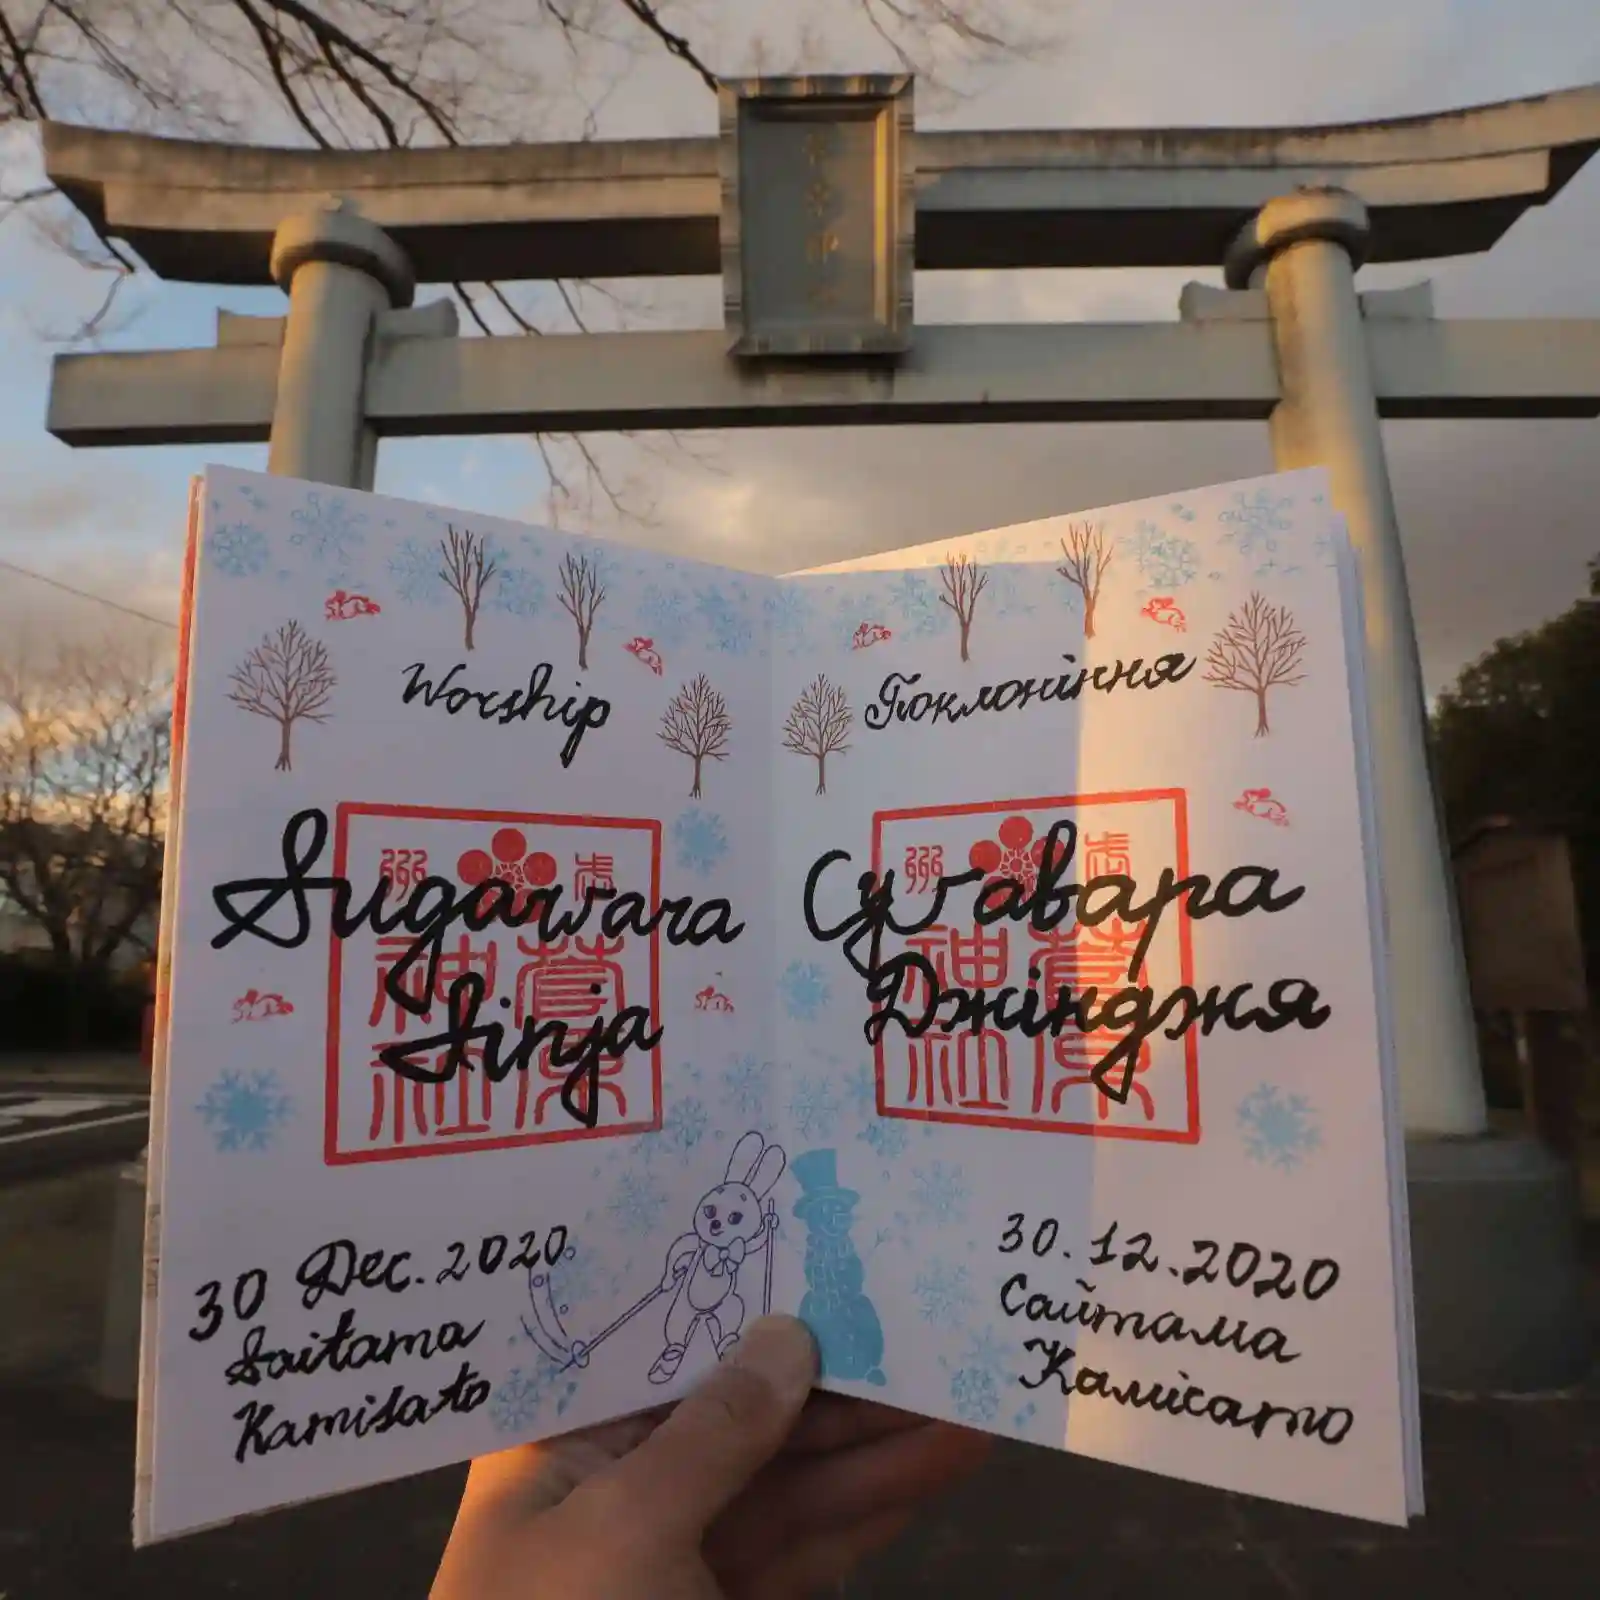 Worship
Sugawara
Sinja
菅原
神社
30 Dec. 2020
Saitama
Kamisato
Поклоніння
Сугавара
Джінджя
菅原
神社
30.12.2020
Сайтама
Камісато